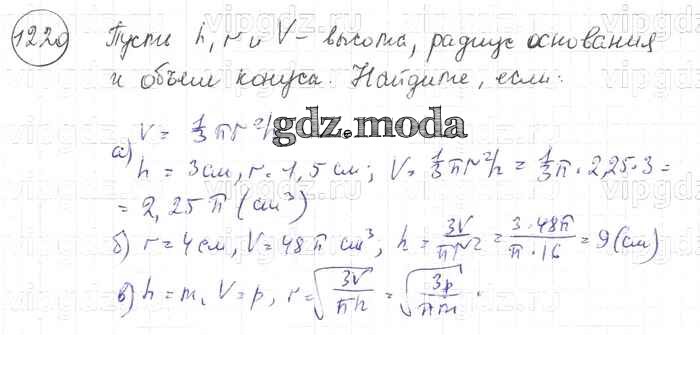 1220 Пусть h, r и V – высота, радиус основания
и объем конуса. Найдите, если:
V = 1/3 πr²h
gdz.moda
а) h = 3см, r = 1,5 см; V = 1/3 πr²h = 1/3 π · 2,25 · 3 =
= 2,25 π (см³)
б) r = 4 см, V = 48π см³, h = 3V/πr² = 3·48π/π·16 = 9 (см)
в) h = m, V = p, r = √(3V/πh) = √(3p/πm).